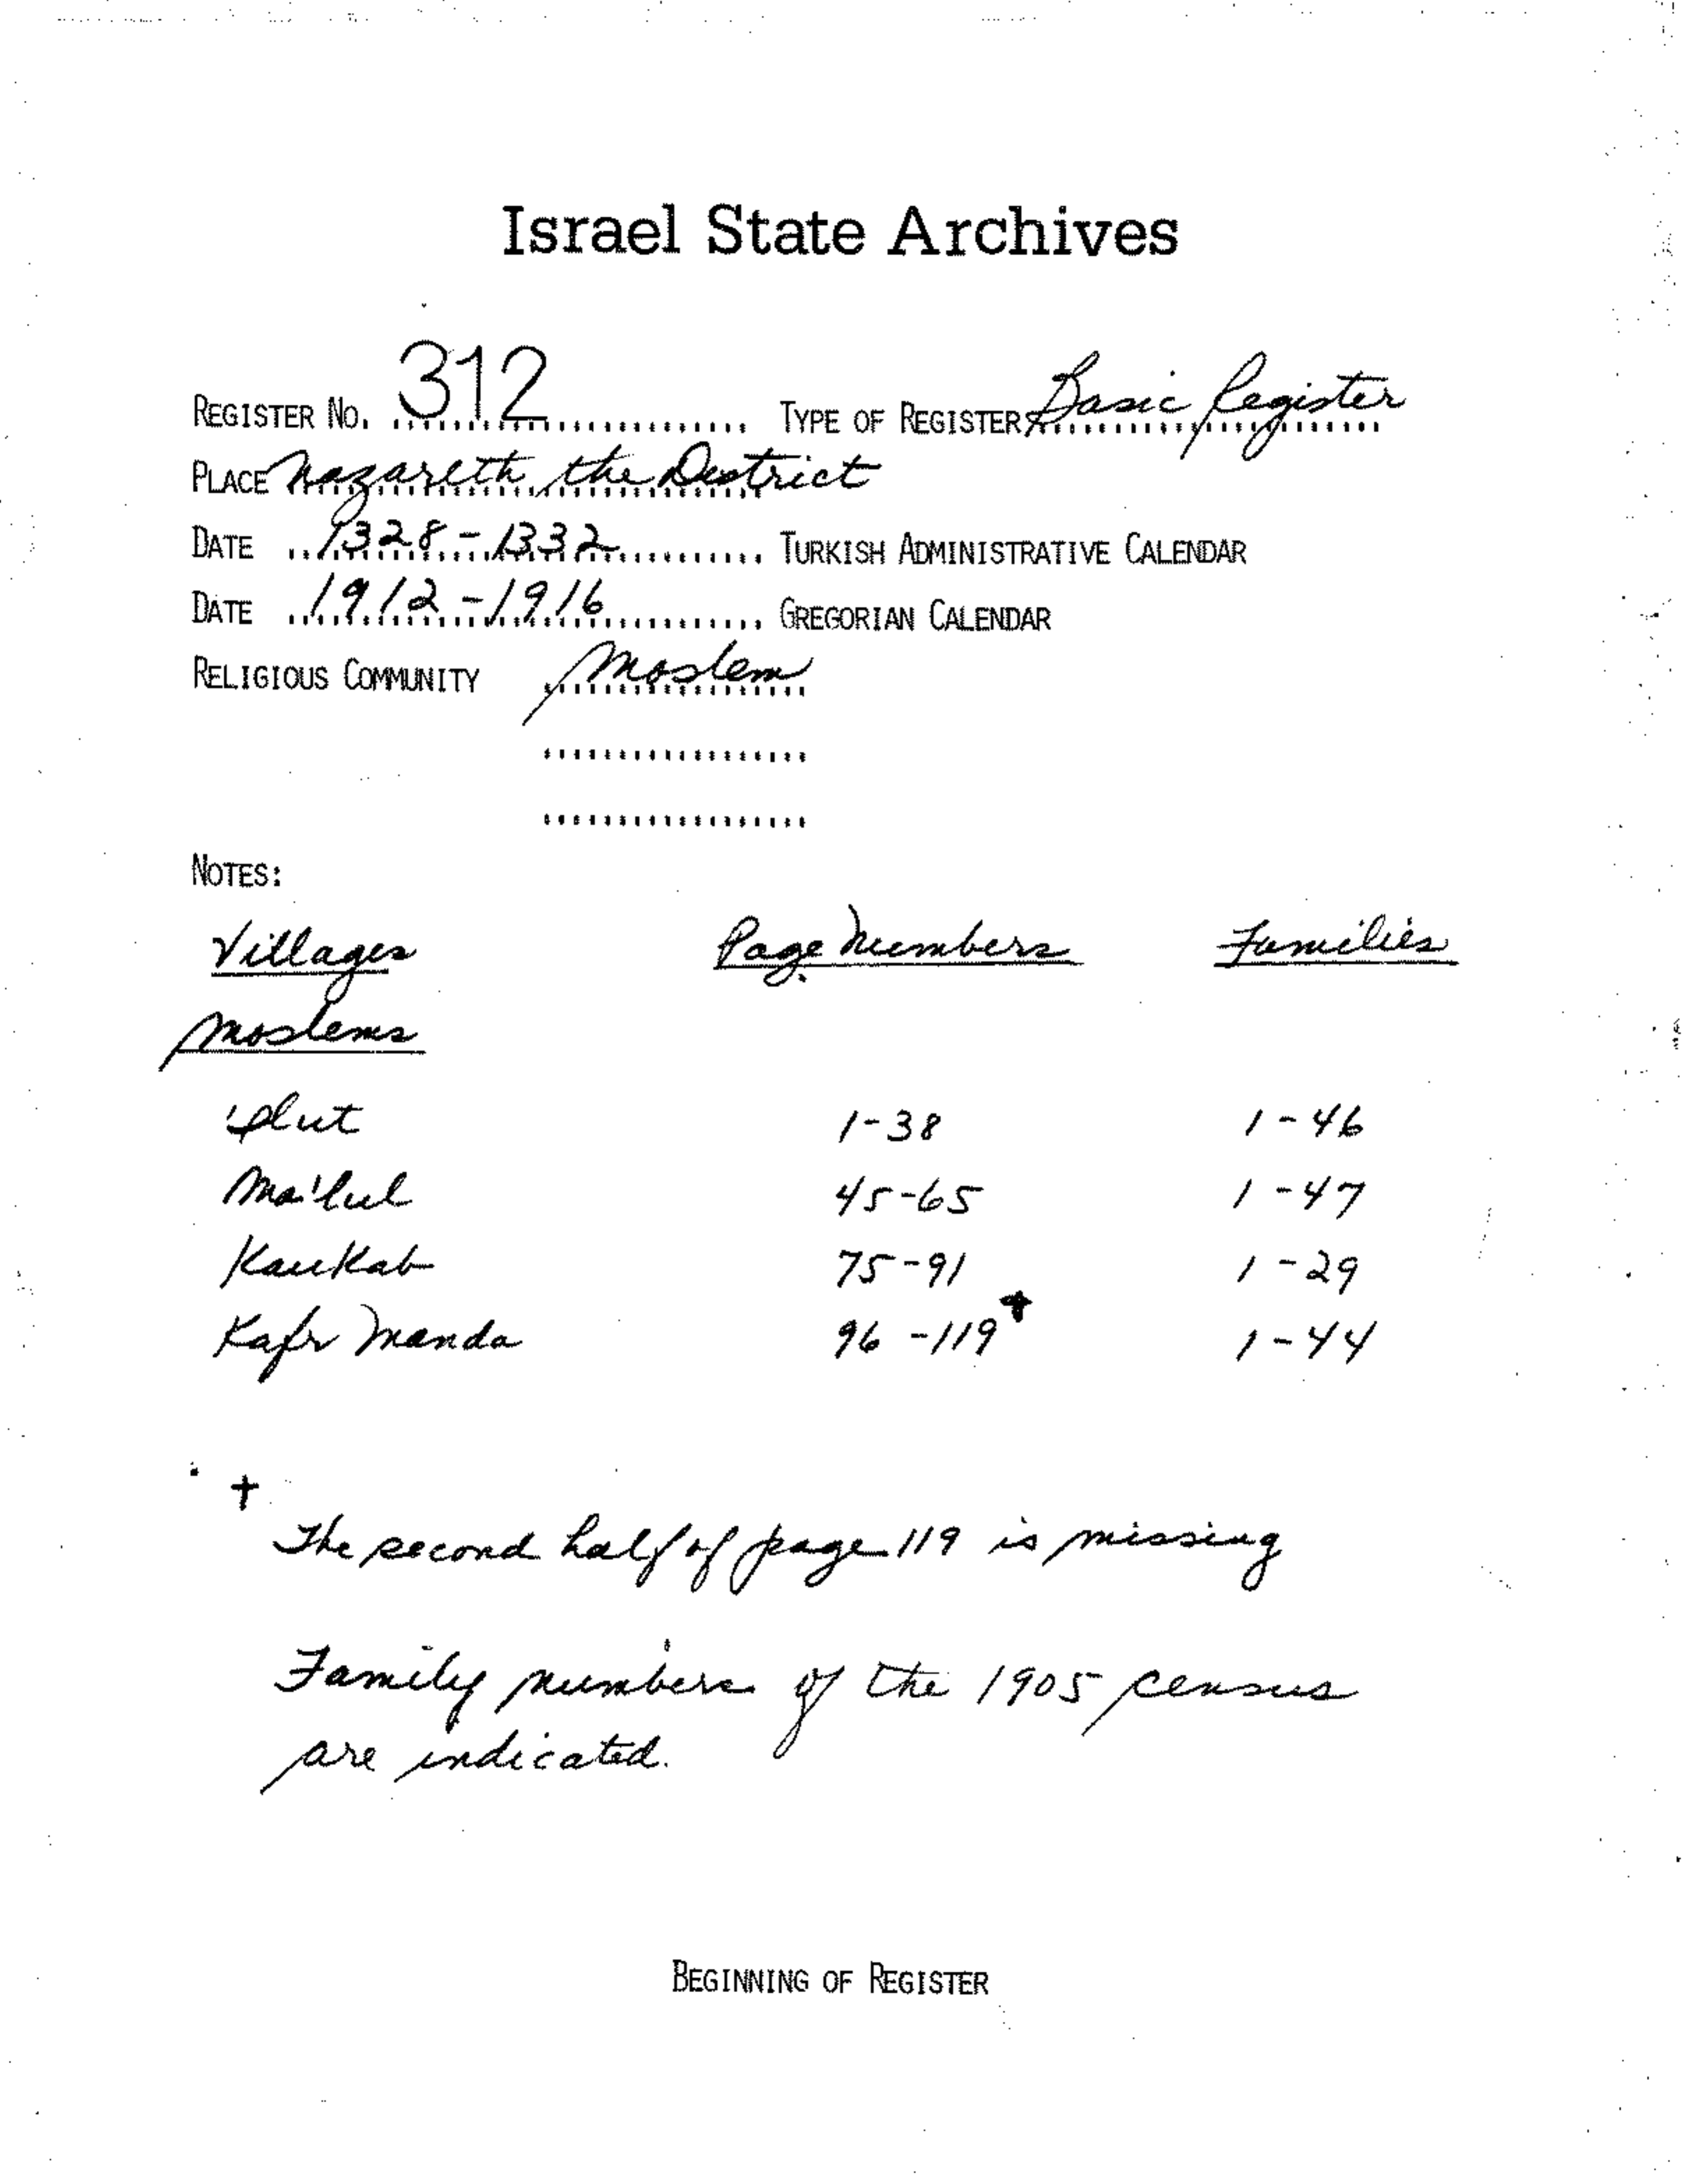 Israel State Archives
REGISTER NO. 312 TYPE OF REGISTER Basic Register
PLACE Nazareth, the District
DATE 1328-1332 TURKISH ADMINISTRATIVE CALENDAR
DATE 1912-1916 GREGORIAN CALENDAR
RELIGIOUS COMMUNITY Moslem
NOTES:
Villages Page Numbers Families
Moslems
'Ilut 1-38 1-46
Ma'lul 45-65 1-47
Kaukab 75-91 1-29
Kafr Manda 96-119+ 1-44
+
The second half of page 119 is missing
Family numbers of the 1905 census
are indicated.
BEGINNING OF REGISTER